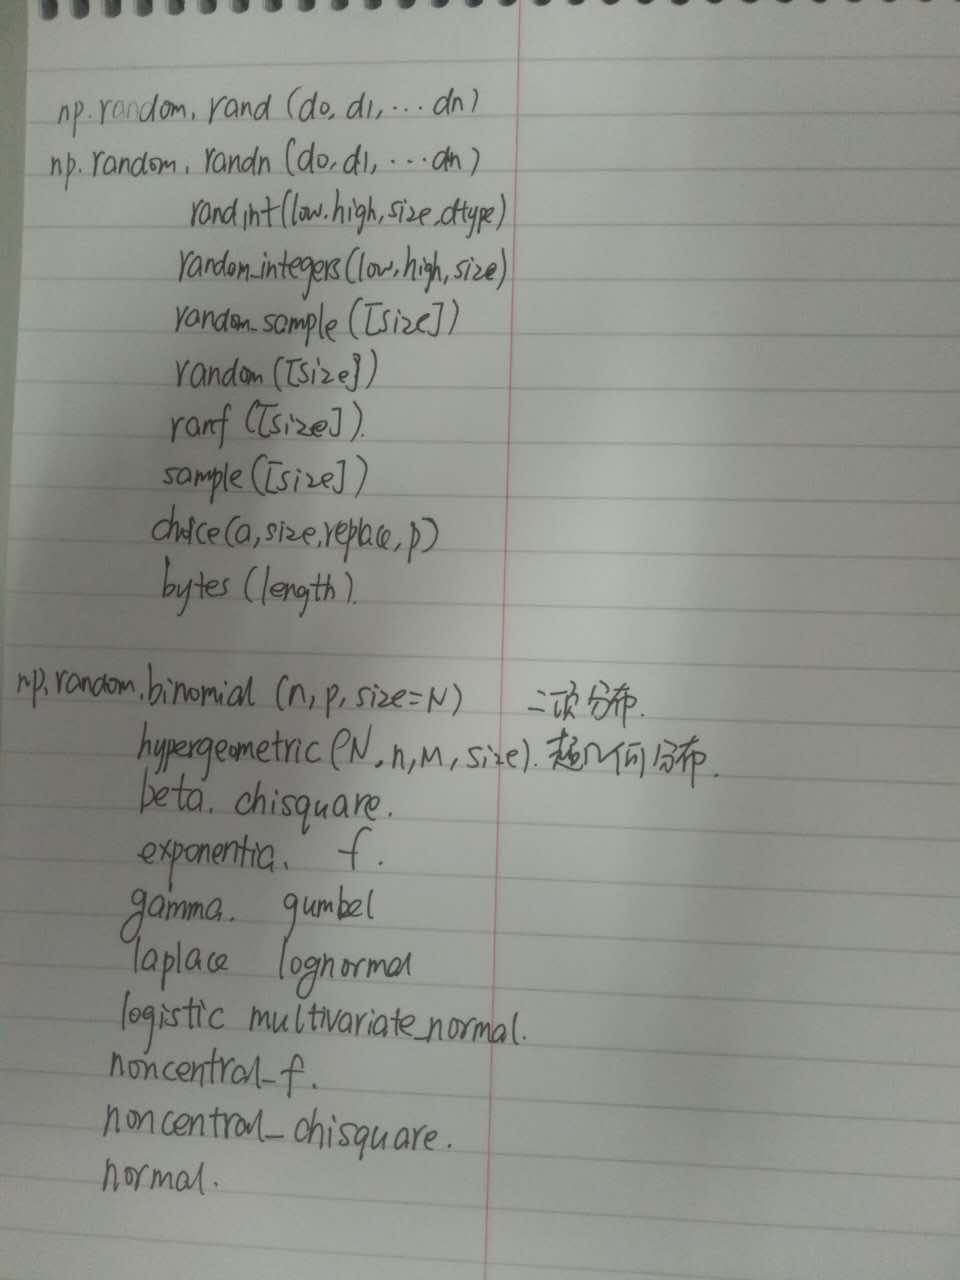 np.random.rand (d0, d1, ... dn)
np.random.randn (d0, d1, ... dn)
randint(low.high, size.dtype)
random_integers(low, high, size)
random_sample ([size])
random ([size])
ranf ([size]).
sample ([size])
choice(a, size, replace, p)
bytes (length).
np.random.binomial (n, p, size=N) 二项分布.
hypergeometric (N, n, M, size). 超几何分布.
beta. chisquare.
exponentia. f.
gamma. gumbel
laplace lognormal
logistic multivariate_normal.
noncentral_f.
noncentral_chisquare.
normal.